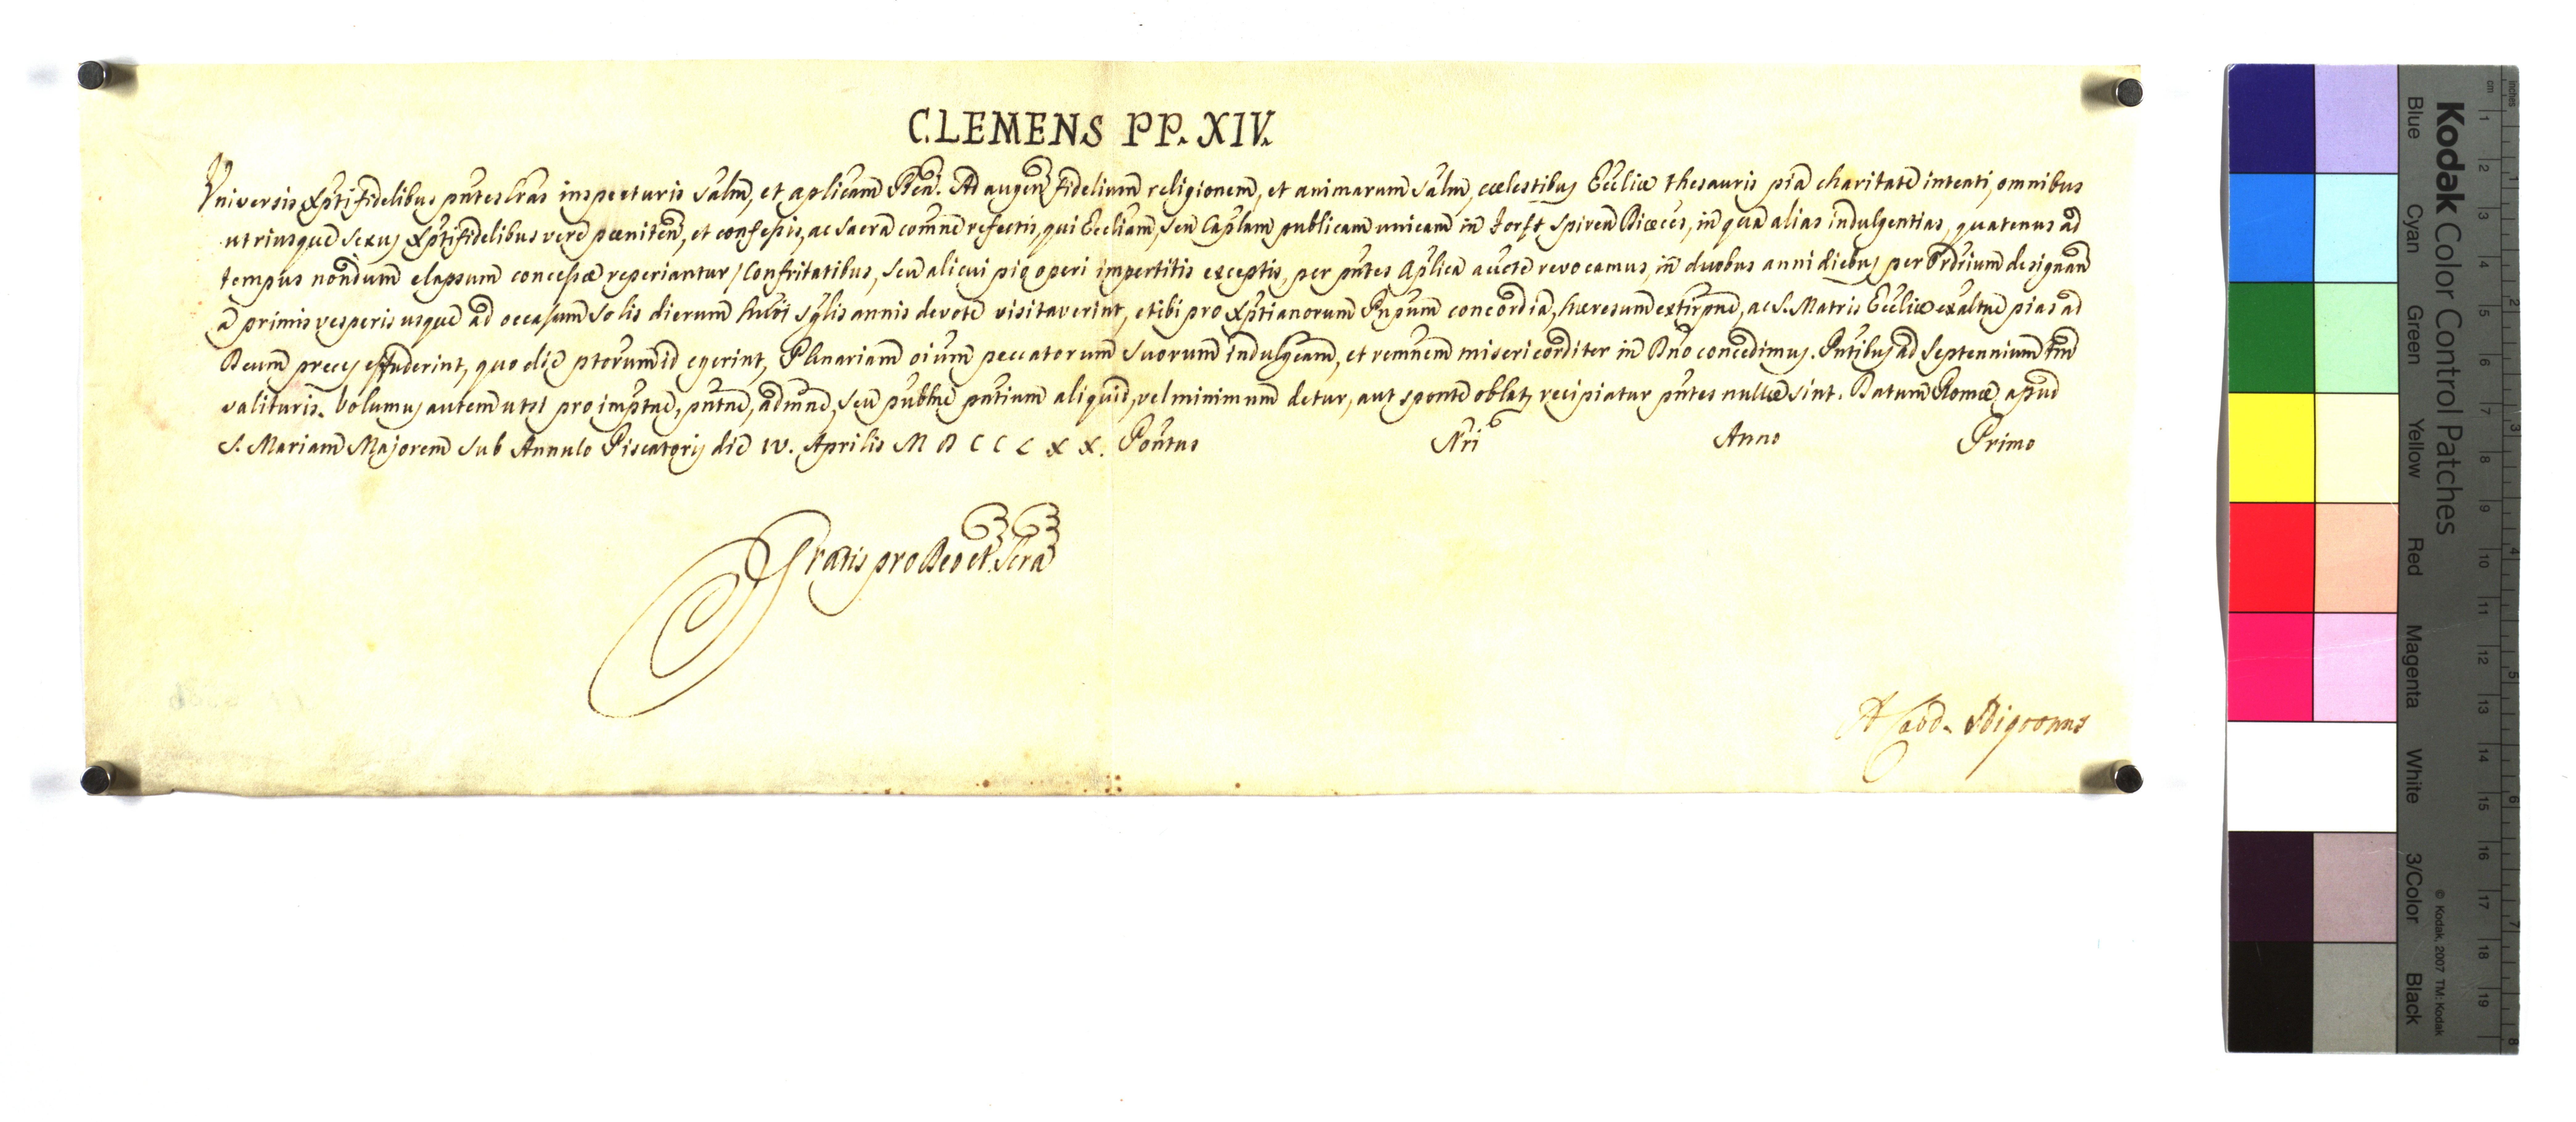 CLEMENS PP. XIV.
Universis Xpti fidelibus pntes lras inspecturis Salm, et aplicam Bem. Ad augen fidelium religionem, et animarum salm, cœlestibus Eccliæ thesauris pia charitate intenti, omnibus
utriusque sexus Xpti fidelibus vere pœniten, et confessis, ac sacra comne refectis, qui Eccliam, seu Caplam publicam unicam in Forst Spiren Diœces, in qua alias indulgentias, quatenus ad
tempus nondum elapsum concessæ reperiantur / Confritatibus, seu alicui pio operi impertitis exceptis, per pntes aplica aucte revocamus, in duobus anni diebus per Ordrium designan
a primis vesperis usque ad occasum Solis dierum hmoi sglis annis devote visitaverint, et ibi pro Xptianorum Pnpum concordia, hæresum extirpne, ac S. Matris Eccliæ exaltne pias ad
Deum preces effuderint, quo die ptorum id egerint, Plenariam oium peccatorum suorum indulgeam, et remnem misericorditer in Dno concedimus. Pntibus ad Septennium tm
valituris. Volumus autem ut si pro imptne, pntne, admne, seu publne pntium aliquid, vel minimum detur, aut sponte oblat recipiatur pntes nullæ sint. Datum Romæ apud
S. Mariam Majorem sub Annulo Piscatoris die IV. Aprilis M D C C L X X. Pontus Nri Anno Primo
Gratis pro Deo et Scra
A Card. Nigronus
Kodak Color Control Patches
Blue Cyan Green Yellow Red Magenta White 3/Color Black
© Kodak, 2007 TM: Kodak
cm 1 2 3 4 5 6 7 8 9 10 11 12 13 14 15 16 17 18 19
inches 1 2 3 4 5 6 7 8